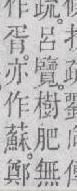 疏。呂覽。樹肥無
作胥。亦作蘇。鄭